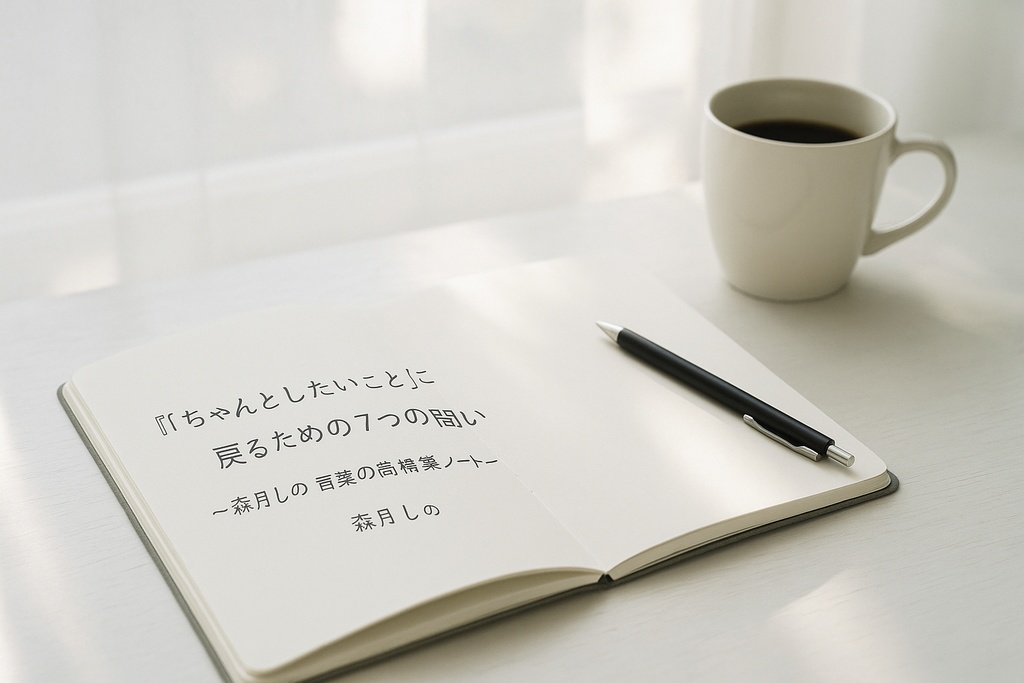 『「ちゃんとしたいこと」に
戻るための7つの い
～森月しの 言葉の ノート–
森月しの